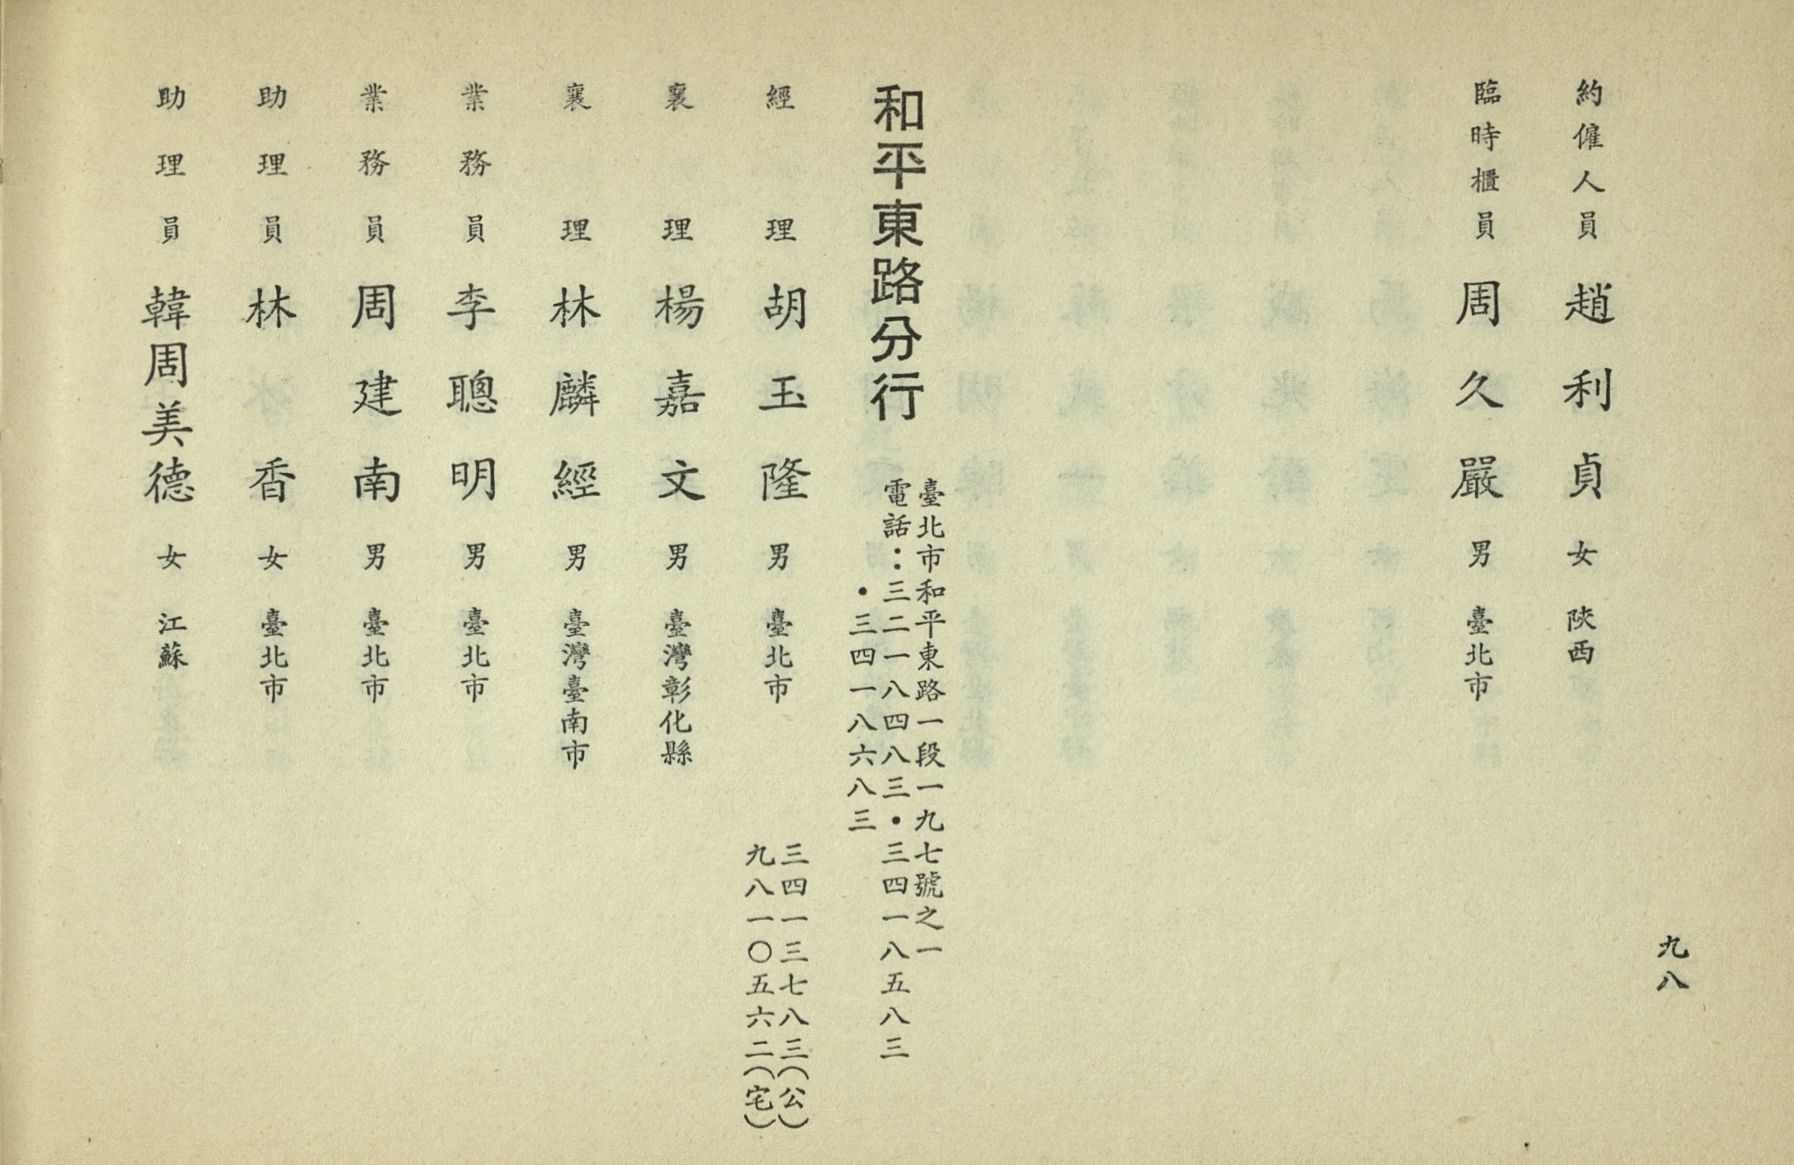 九八
約僱人員 趙利貞 女 陝西
臨時櫃員 周久嚴 男 臺北市
和平東路分行
臺北市和平東路一段一九七號之一
電話：三二一八四八三•三四一八五八三
•三四一八六八三
經理 胡玉隆 男 臺北市
三四一三七八三(公)
九八一〇五六二(宅)
襄理 楊嘉文 男 臺灣彰化縣
襄理 林麟經 男 臺灣臺南市
業務員 李聰明 男 臺北市
業務員 周建南 男 臺北市
助理員 林香 女 臺北市
助理員 韓周美德 女 江蘇